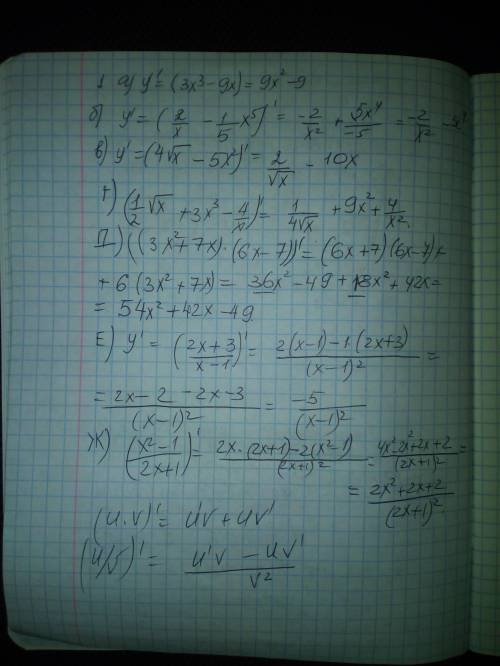 1 а) y' = (3x³ - 9x) = 9x² - 9
б) y' = (2/x - 1/5 x⁵)' = -2/x² + 5x⁴/-5 = -2/x² - x⁴
в) y' = (4√x - 5x²)' = 2/√x - 10x
г) (1/2 √x + 3x³ - 4/x)' = 1/4√x + 9x² + 4/x²
Д) ((3x² + 7x) · (6x - 7))' = (6x + 7)(6x - 7) +
+ 6(3x² + 7x) = 36x² - 49 + 18x² + 42x =
= 54x² + 42x - 49
Е) y' = (2x+3/x-1)' = 2(x-1) - 1(2x+3)/(x-1)² =
= 2x - 2 - 2x - 3/(x-1)² = -5/(x-1)²
Ж) (x²-1/2x+1)' = 2x · (2x+1) - 2(x²-1)/(2x+1)² = 4x² - 2x² + 2x + 2/(2x+1)² =
= 2x² + 2x + 2/(2x+1)²
(U·V)' = U'V + UV'
(U/V)' = U'V - UV'/V²